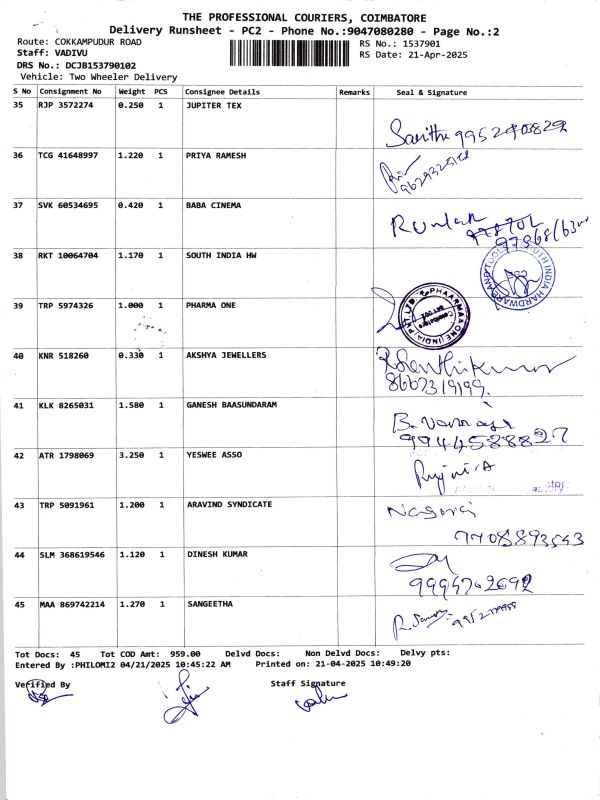 THE PROFESSIONAL COURIERS, COIMBATORE
Delivery Runsheet - PC2 - Phone No.:9047080280 - Page No.:2
Route: COKKAMPUDUR ROAD RS No.: 1537901
Staff: VADIVU RS Date: 21-Apr-2025
DRS No.: DCJB153790102
Vehicle: Two Wheeler Delivery
S No Consignment No Weight PCS Consignee Details Remarks Seal & Signature
35 RJP 3572274 0.250 1 JUPITER TEX
36 TCG 41648997 1.220 1 PRIYA RAMESH
37 SVK 60534695 0.420 1 BABA CINEMA
38 RKT 10064704 1.170 1 SOUTH INDIA HW
39 TRP 5974326 1.000 1 PHARMA ONE
40 KNR 518260 0.330 1 AKSHYA JEWELLERS
8667319199.
41 KLK 8265031 1.580 1 GANESH BAASUNDARAM
42 ATR 1798069 3.250 1 YESWEE ASSO
43 TRP 5091961 1.200 1 ARAVIND SYNDICATE
7708893543
44 SLM 368619546 1.120 1 DINESH KUMAR
45 MAA 869742214 1.270 1 SANGEETHA
Tot Docs: 45 Tot COD Amt: 959.00 Delvd Docs: Non Delvd Docs: Delvy pts:
Entered By :PHILOMI2 04/21/2025 10:45:22 AM Printed on: 21-04-2025 10:49:20
Verified By Staff Signature